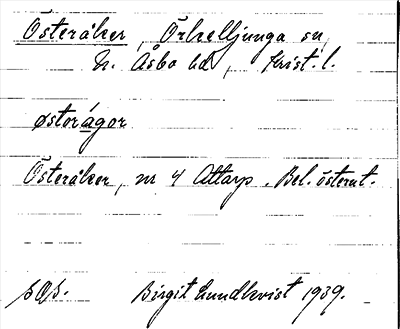 Österåker, Örkelljunga sn,
N. Åsbo hd, Krist. l.
østərágər
Österåker, nr 4 Attarp. Bel. österut.
Birgit Lundkvist 1939.